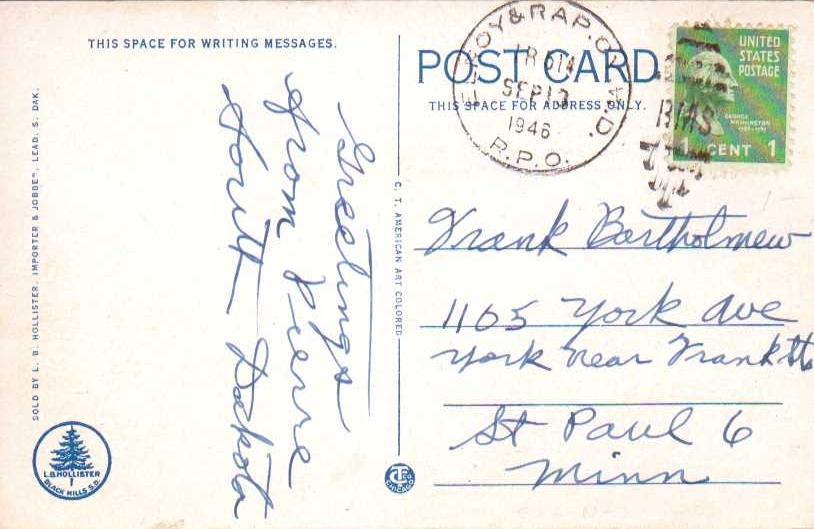 THIS SPACE FOR WRITING MESSAGES.
Greetings
from Pierre
South Dakota
SOLD BY L. B. HOLLISTER, IMPORTER & JOBBER, LEAD, S. DAK.
L.B. HOLLISTER
BLACK HILLS S.D.
C. T. AMERICAN ART COLORED
CHICAGO
POST CARD
THIS SPACE FOR ADDRESS ONLY.
ELROY & RAP. CY.
TR 514
SEP 13
1946
R.P.O.
RMS
UNITED
STATES
POSTAGE
GEORGE
WASHINGTON
1 CENT 1
Frank Bartholmew
1165 York Ave
York near Frank St
St Paul 6
Minn